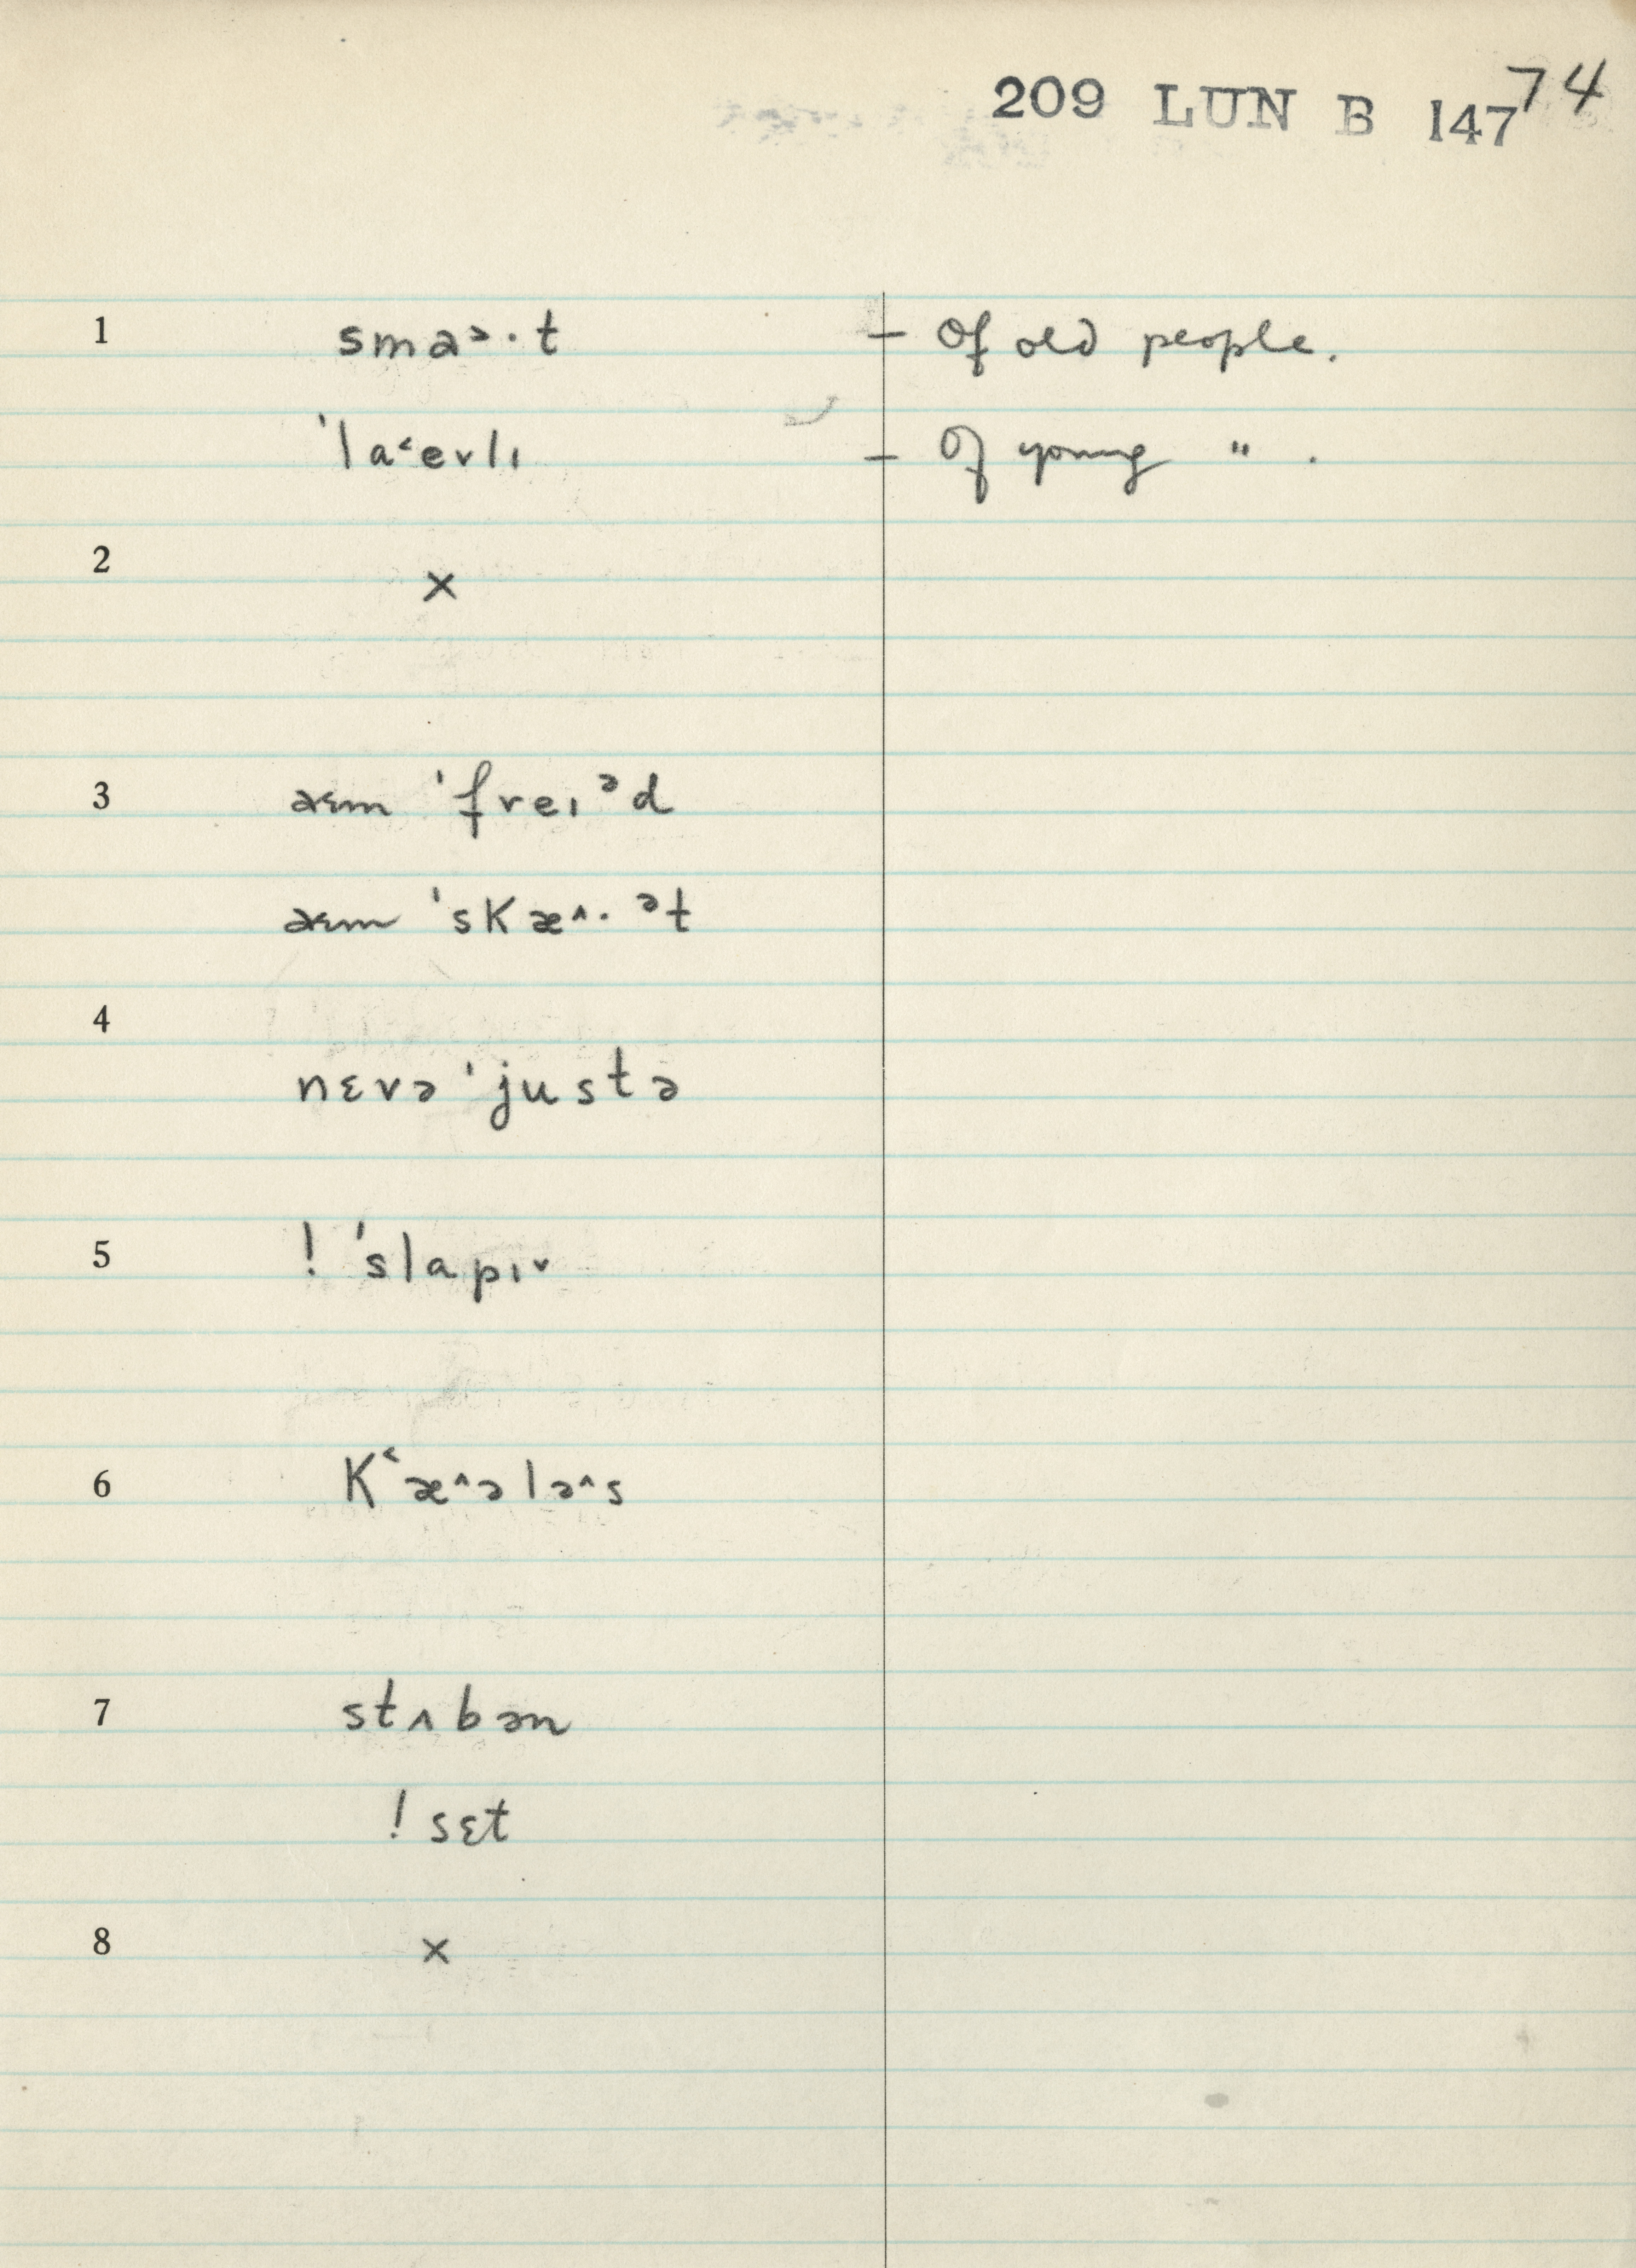 209 LUN B 147 74
1 sma˃·t – Of old people.
ˈla˂evlı – Of young " .
2 ×
3 aɪm ˈfreıᵊd
aɪm ˈskæ^·ᵊt
4 nɛvə ˈjustə
5 ! ˈslapı˅
6 K˂æ^ələ^s
7 stʌbən
! sɛt
8 ×